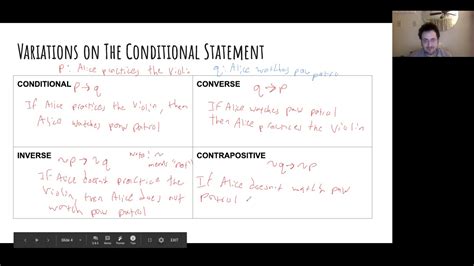 Variations on The Conditional Statement
p: Alice practices the violin q: Alice watches paw patrol
CONDITIONAL p→q
If Alice practices the violin, then
Alice watches paw patrol
CONVERSE q→p
If Alice watches paw patrol
then Alice practices the violin
INVERSE ~p→~q Note: ~ means "not"
If Alice doesn't practice the
violin, then Alice does not
watch paw patrol
CONTRAPOSITIVE ~q→~p
If Alice doesn't watch paw
patrol
Slide 4
EXIT